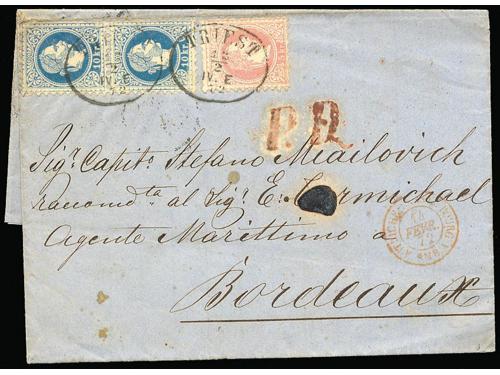 10 Kr. 10 Kr.
TRIEST
IV. E
P. D.
Sigr. Capito. Stefano Miailovich
raccomdta al Sigr. E. Carmichael
Agente Marittimo a
Bordeaux
FEVR.